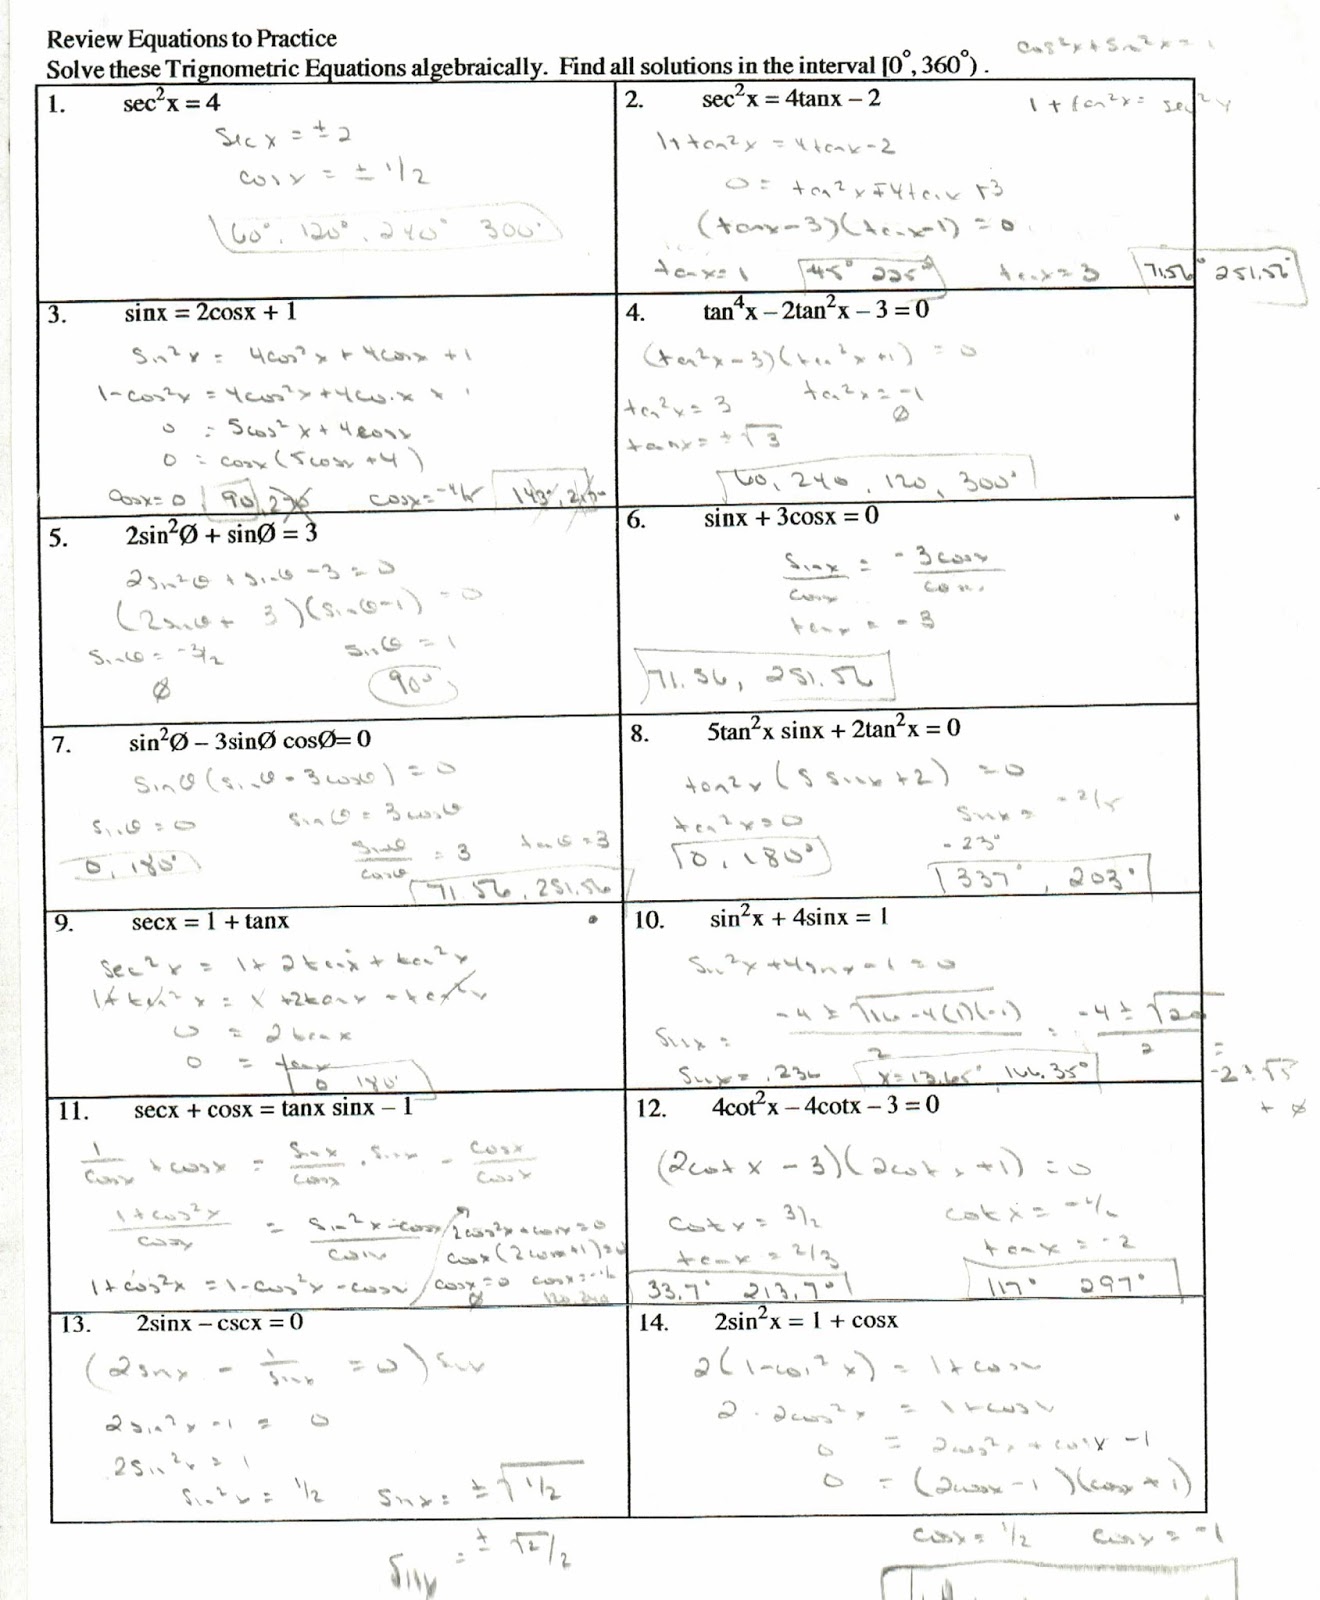 Review Equations to Practice
cos²x + sin²x = 1
Solve these Trignometric Equations algebraically. Find all solutions in the interval [0°, 360°).
1. sec²x = 4
sec x = ± 2
cos x = ± 1/2
60°, 120°, 240° 300°
2. sec²x = 4tanx – 2
1 + tan²x = sec²x
1 + tan²x = 4tanx - 2
(tanx - 3)(tanx - 1) = 0
tanx = 1 45° 225° tanx = 3 71.56° 251.56°
3. sinx = 2cosx + 1
sin²x = 4cos²x + 4cosx + 1
1 - cos²x = 4cos²x + 4cosx + 1
0 = 5cos²x + 4cosx
0 = cosx (5cosx + 4)
cosx = 0 90, 270 cosx = -4/5 143°,
4. tan⁴x – 2tan²x – 3 = 0
(tan²x - 3)(tan²x + 1) = 0
tan²x = 3 tan²x = -1
tanx = ± √3 ∅
60, 240, 120, 300°
5. 2sin²Ø + sinØ = 3
2sin²θ + sinθ - 3 = 0
(2sinθ + 3)(sinθ - 1) = 0
sinθ = -3/2 sinθ = 1
∅ 90°
6. sinx + 3cosx = 0
sinx/cosx = -3cosx/cosx
tanx = -3
71.56, 251.56
7. sin²Ø – 3sinØ cosØ= 0
sinθ (sinθ - 3cosθ) = 0
sinθ = 0 sinθ = 3cosθ
0, 180° sinθ/cosθ = 3 tanθ = 3
71.56, 251.56
8. 5tan²x sinx + 2tan²x = 0
tan²x (5 sinx + 2) = 0
tan²x = 0 sinx = -2/5
0, 180° -23°
337°, 203°
9. secx = 1 + tanx
sec²x = 1 + 2tanx + tan²x
1 + tan²x = 1 + 2tanx + tan²x
0 = 2tanx
0 = tanx
0 180°
10. sin²x + 4sinx = 1
sin²x + 4sinx - 1 = 0
sinx = -4 ± √16 - 4(1)(-1) / 2 = -4 ± √20 / 2 = -2 ± √5
sinx = .236 x = 13.65°, 166.35°
+ ∅
11. secx + cosx = tanx sinx – 1
1/cosx + cosx = sinx/cosx · sinx - cosx/cosx
1 + cos²x / cosx = sin²x - cosx / cosx
1 + cos²x = 1 - cos²x - cosx
2cos²x + cosx = 0
cosx (2cosx + 1) = 0
cosx = 0 cosx = -1/2
∅ 120, 240
12. 4cot²x – 4cotx – 3 = 0
(2cotx - 3)(2cotx + 1) = 0
cotx = 3/2 cotx = -1/2
tanx = 2/3 tanx = -2
33.7° 213.7° 117° 297°
13. 2sinx – cscx = 0
(2sinx - 1/sinx = 0) sinx
2sin²x - 1 = 0
2sin²x = 1
sin²x = 1/2 sinx = ± √1/2
sinx = ± √2/2
14. 2sin²x = 1 + cosx
2(1 - cos²x) = 1 + cosx
2 - 2cos²x = 1 + cosx
0 = 2cos²x + cosx - 1
0 = (2cosx - 1)(cosx + 1)
cosx = 1/2 cosx = -1